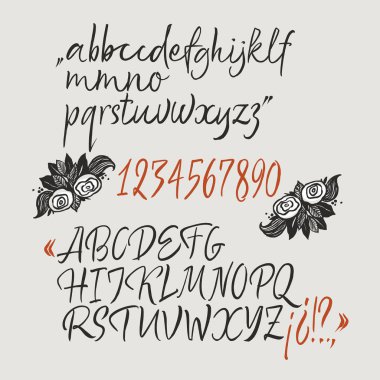 „abbccdefghijklf
mmno
pqrstuvwxyzz”
1234567890
«ABCDEFG
HIJKLMNOPQ
RSTUVWXYZ¡¿!?..,»